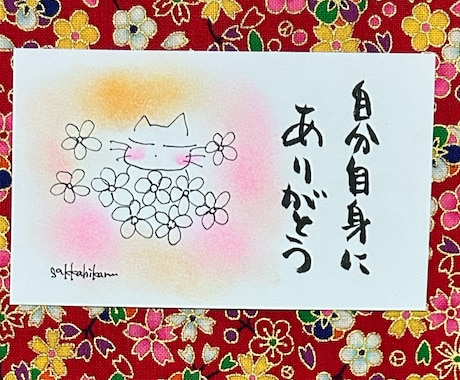 自分自身に
ありがとう